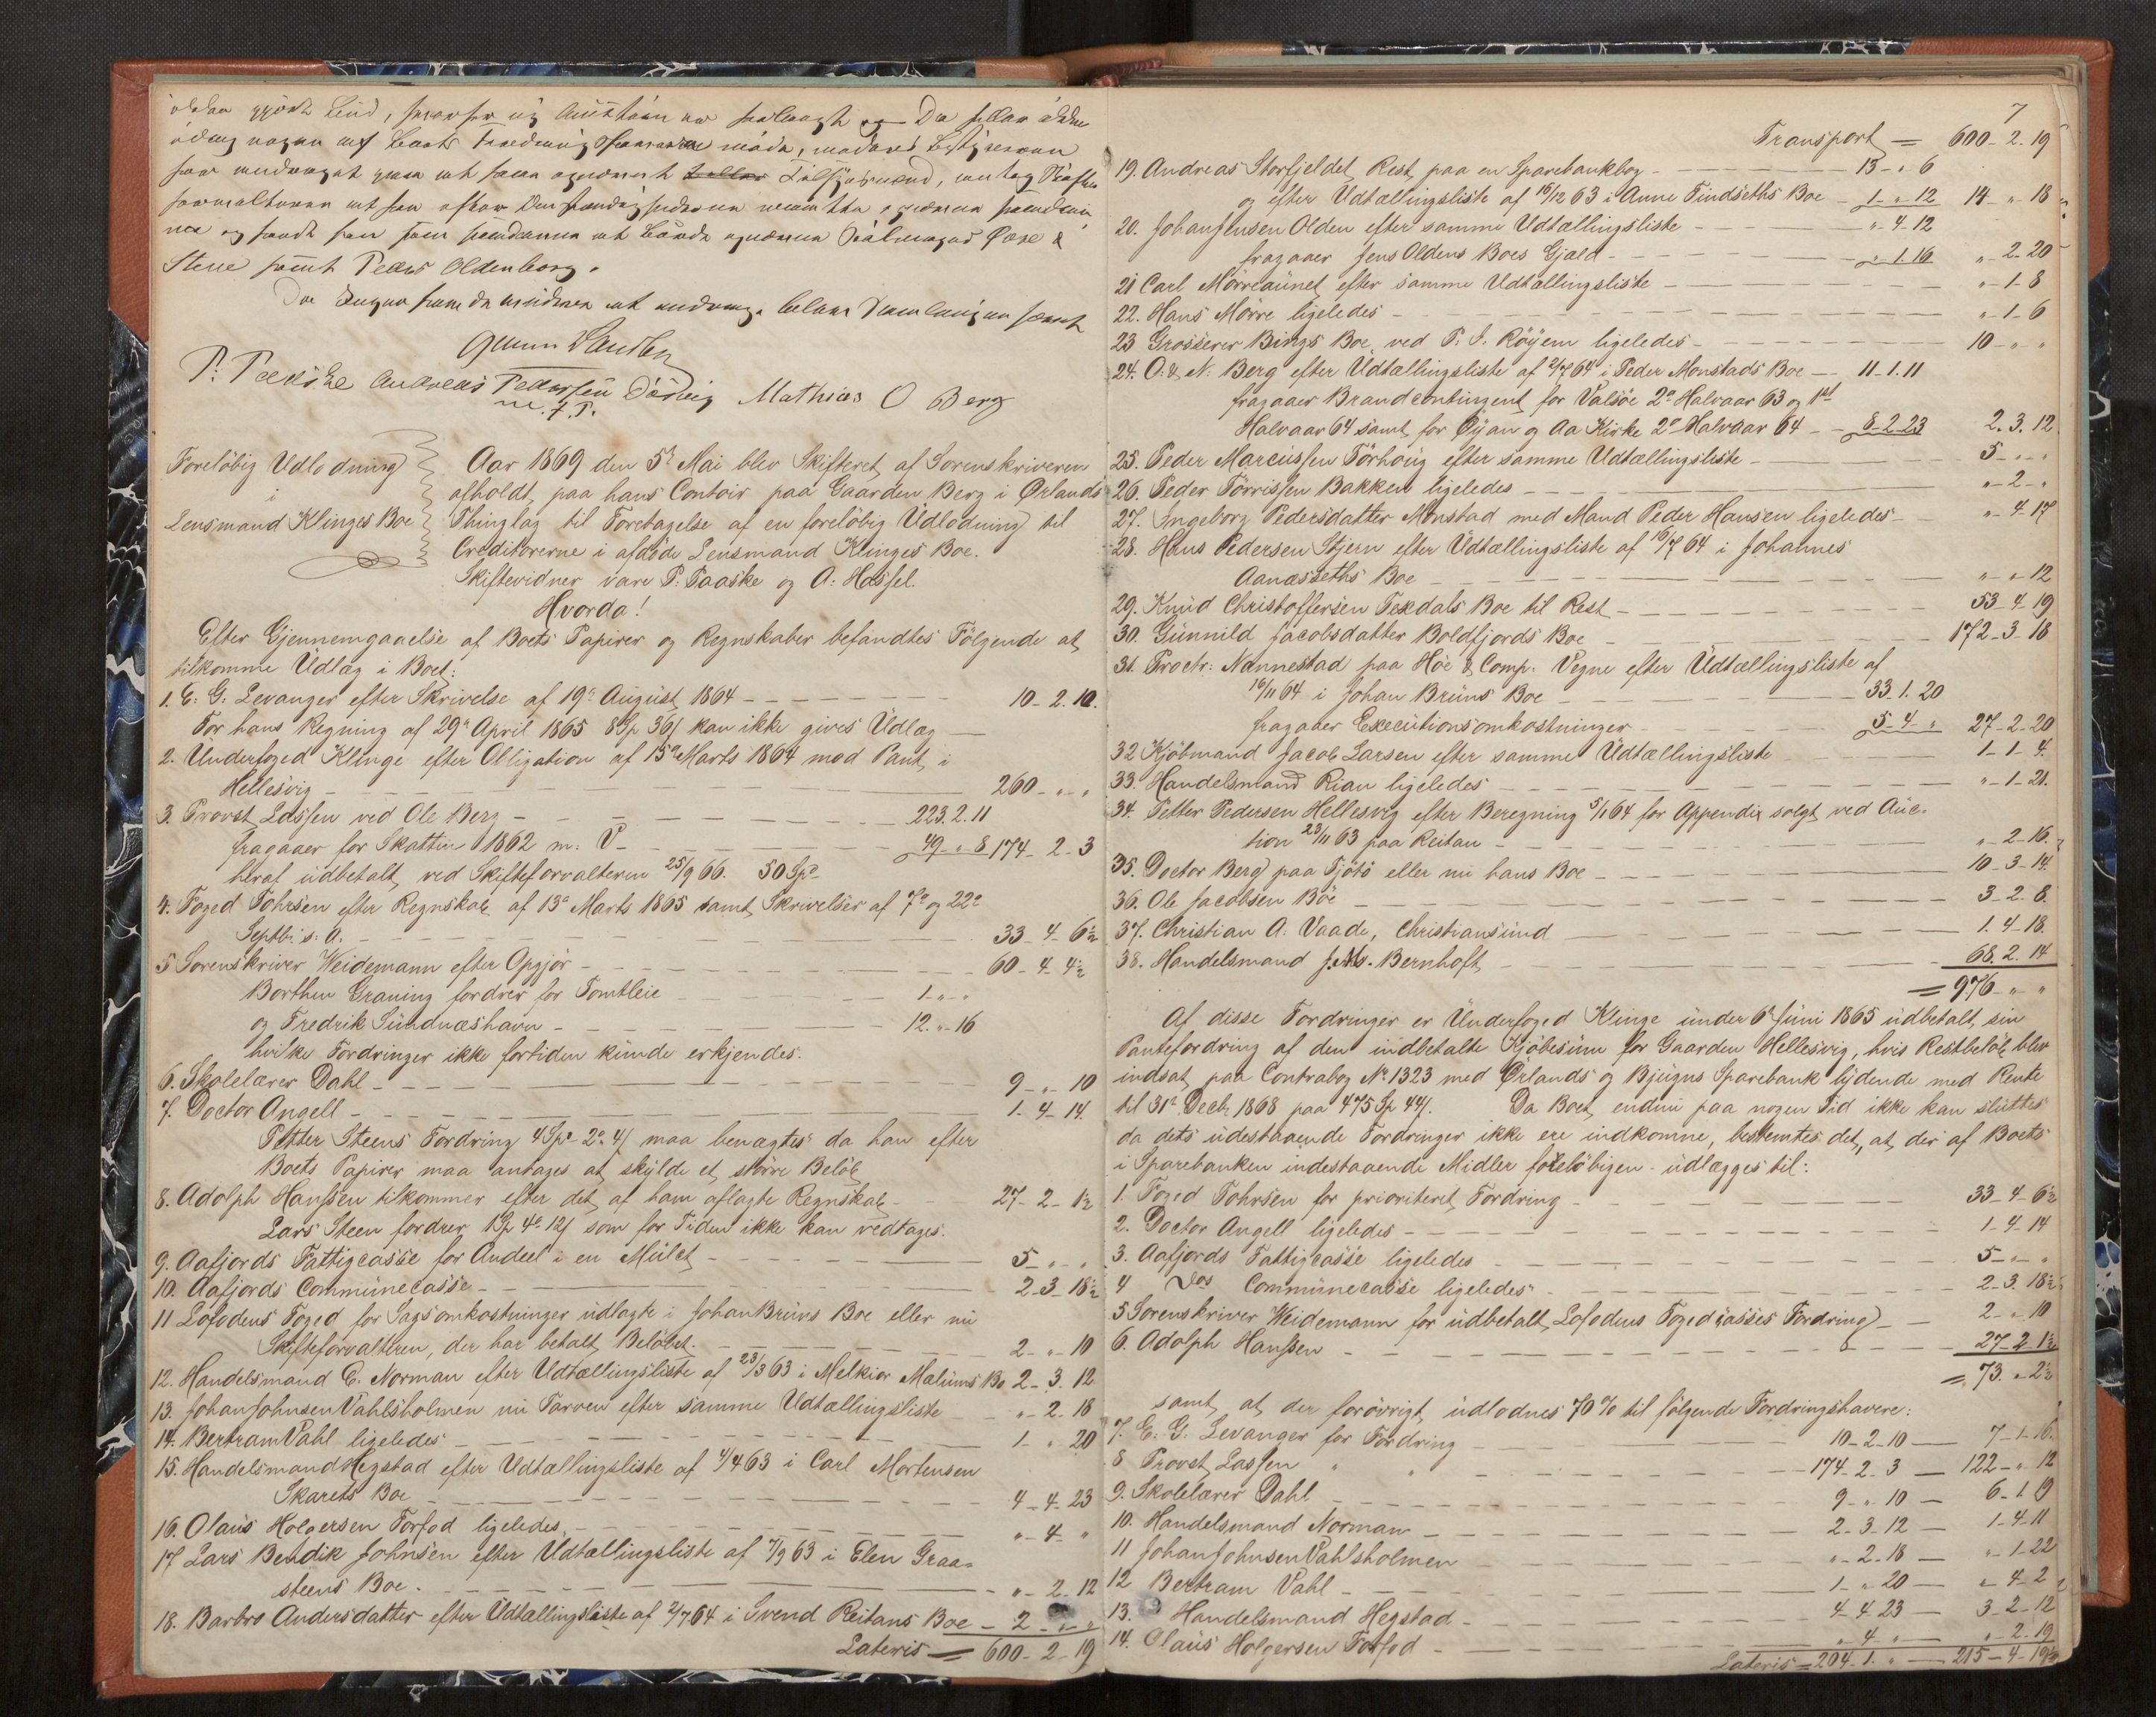 Stene samt Peder Oldenborg.
P: Paaske Andreas Pedersen Mathias O Berg
m. f. P.
Foreløbig Udlodning
i
Lensmand Klinges Boe
Aar 1869 den 5t Mai blev Skifteret af Sorenskriveren
afholdt paa hans Contoir paa Gaarden Berg i Ørlands
Thinglag til Foretagelse af en foreløbig Udlodning til
Creditorerne i afdøde Lensmand Klinges Boe.
Skiftevidner vare P: Paaske og A: Hassel.
Hvorda!
Efter Gjennemgaaelse af Boets Papirer og Regnskaber befandtes Følgende at
tilkomme Udlæg i Boet:
1. E. G. Levanger efter Skrivelse af 19de August 1864 - 10 - 2. 10.
For hans Regning af 29de April 1865 8 Sp 36 s kan ikke gives Udlæg
2. Underfoged Klinge efter Obligation af 15de Marts 1864 mod Pant i
Hellesvig - 260 - " "
3. Provst Lassen ved Ole Berg - 223. 2. 11
fragaaer for Skatten 1862 m: V - 49 - " 8 174 - 2 - 3
heraf udbetalt ved Skifteforvalteren 25/9 66. 50 Spd
4. Foged Tohrsen efter Regnskab af 13de Marts 1865 samt Skrivelser af 7de og 22de
Septbr s: A. - 33 - 4 - 6½
5 Sorenskriver Weidemann efter Opgjør - 60 - 4 - 4½
Borthen Graning fordrer for Tomtleie - 1 - " "
og Fredrik Sundnæshavn - 12. " - 16
hvilke Fordringer ikke fortiden kunde erkjendes.
6. Skolelærer Dahl - 9 - " - 10
7. Doctor Angell - 1 - 4 - 14
Petter Steens Fordring 4 Spd 2 o: 4 s maa benægtes da han efter
Boets Papirer maa antages at skylde et større Beløb
8. Adolph Hanssen tilkommer efter det af ham aflagte Regnskab - 27 - 2 - 1½
Lars Steen fordrer 1 Sp 4 o: 12 s som for Tiden ikke kan vedtages.
9. Aafjords Fattigcasse for Andeel i en Mulct - 5 - " "
10. Aafjords Communecasse - 2 - 3 - 18½
11 Lofodens Foged for Sagsomkostninger udlagte i Johan Bruns Boe eller nu
Skifteforvalteren, der har betalt Beløbet. - 2 - " - 10
12. Handelsmand E. Norman efter Udtællingsliste af 23/3 63 i Melkior Malums Bo 2 - 3. 12
13. Johan Johnsen Vahlsholmen nu Tarven efter samme Udtællingsliste " - 2 - 18
14. Bertram Vahl ligeledes - 1 - " 20
15. Handelsmand Hegstad efter Udtællingsliste af 4/4 63 i Carl Mortensen
Skarets Boe - 4 - 4 - 23
16. Olaus Holgersen Forfod ligeledes - " - 4 - "
17 Lars Bendik Johnsen efter Udtællingsliste af 7/9 63 i Elen Graa-
steens Boe. - " - 2 - 12
18. Barbro Andersdatter efter Udtællingsliste af 2/7 64 i Svend Reitans Boe - 2 - " "
Lateris = 600 - 2 - 19
7
Transport = 600 - 2. 19
19. Andreas Storfjeldet Rest paa en Sparebankbog - 13 - " 6
og efter Udtællingsliste af 16/12 63 i Anne Findseths Boe - 1 - " 12 14 - " 18
20. Johan Jensen Olden efter samme Udtællingsliste - " 4 - 12
fragaaer Jens Oldens Boes Gjæld - " 1 - 16 " - 2 - 20
21 Carl Mørreaunet efter samme Udtællingsliste - " - 1 - 8
22. Hans Mørre ligeledes - " - 1 - 6
23 Grosserer Bings Boe ved P. I. Røyem ligeledes - 10 - " "
24. O. & N. Berg efter Udtællingsliste af 2/7 64 i Peder Monstads Boe - 11 - 1. 11
fragaaer Brandcontingent for Valsøe 2de Halvaar 63 og 1st
Halvaar 64 samt for Øyan og Aa Kirke 2de Halvaar 64 - 8 - 2 - 23 2. 3. 12
25. Peder Marcussen Tørhoug efter samme Udtællingsliste - 5 - " "
26. Peder Tørrissen Bakken ligeledes - " - 2 - "
27. Ingeborg Pedersdatter Monstad med Mand Peder Hansen ligeledes - " - 4 - 17
28. Hans Pedersen Stjern efter Udtællingsliste af 16/7 64 i Johannes
Aanæsseths Boe - " - " 12
29. Knud Christoffersen Texdals Boe til Rest - 53 - 4 - 19
30. Gunnild Jacobsdatter Boldfjords Boe - 172 - 3 - 18
31. Proctr: Nannestad paa Høe & Comp. Vegne efter Udtællingsliste af
16/11 64 i Johan Bruns Boe - 33. 1. 20
fragaaer Executionsomkostninger - 5 - 4 - " 27 - 2 - 20
32 Kjøbmand Jacob Larsen efter samme Udtællingsliste - 1 - 1 - 4.
33. Handelsmand Rian ligeledes - " - 1 - 21.
34. Petter Pedersen Hellesvig efter Beregning 5/1 64 for Appendix solgt ved Auc-
tion 23/11 63 paa Reitan - " - 2 - 16.
35. Doctor Berg paa Tjøtø eller nu hans Boe - 10 - 3 - 14.
36. Ole Jacobsen Bøe - 3 - 2. 8.
37. Christian A: Vaade, Christiansund - 1. 4 - 18.
38. Handelsmand J. M. Bernhoft - 68. 2. 14
= 976 - " "
Af disse Fordringer er Underfoged Klinge under 6te Juni 1865 udbetalt sin
Pantefordring af den indbetalte Kjøbesum for Gaarden Hellesvig, hvis Restbeløb blev
indsat paa Contrabog No. 1323 med Ørlands og Bjugns Sparebank lydende med Rente
til 31te Decbr 1868 paa 475 Sp 44 s. Da Boet endnu paa nogen Tid ikke kan sluttes
da dets udestaaende Fordringer ikke ere indkomne, bestemtes det, at der af Boets
i Sparebanken indestaaende Midler foreløbigen udlægges til:
1. Foged Tohrsen for prioriteret Fordring - 33 - 4 - 6½
2. Doctor Angell ligeledes - 1 - 4 - 14
3. Aafjords Fattigcasse ligeledes - 5 - " "
4 Dos Communecasse ligeledes - 2 - 3. 18½
5 Sorenskriver Weidemann for udbetalt Lofodens Fogedcasses Fordring - 2 - " 10
6. Adolph Hanssen - 27 - 2 1½
= 73. " 2½
samt at der forøvrigt udlodnes 70 % til følgende Fordringshavere:
7. E. G. Levanger for Fordring - 10 - 2 - 10 — 7 - 1 - 16.
8 Provst Lassen " " - 174 - 2. 3 — 122 - " 12
9. Skolelærer Dahl - 9 - " 10 — 6 - 1 9
10. Handelsmand Norman - 2 - 3. 12 — 1 - 4 - 11
11 Johan Johnsen Vahlsholmen - " - 2 - 18 — " - 1 - 22
12 Bertram Vahl - 1 - " 20 — " 4 - 2
13. Handelsmand Hegstad - 4 - 4 23 — 3 - 2 - 12
14. Olaus Holgersen Forfod - " 4 " — " - 2 - 19
Lateris = 204 - 1. " — 215 - 4 - 19½